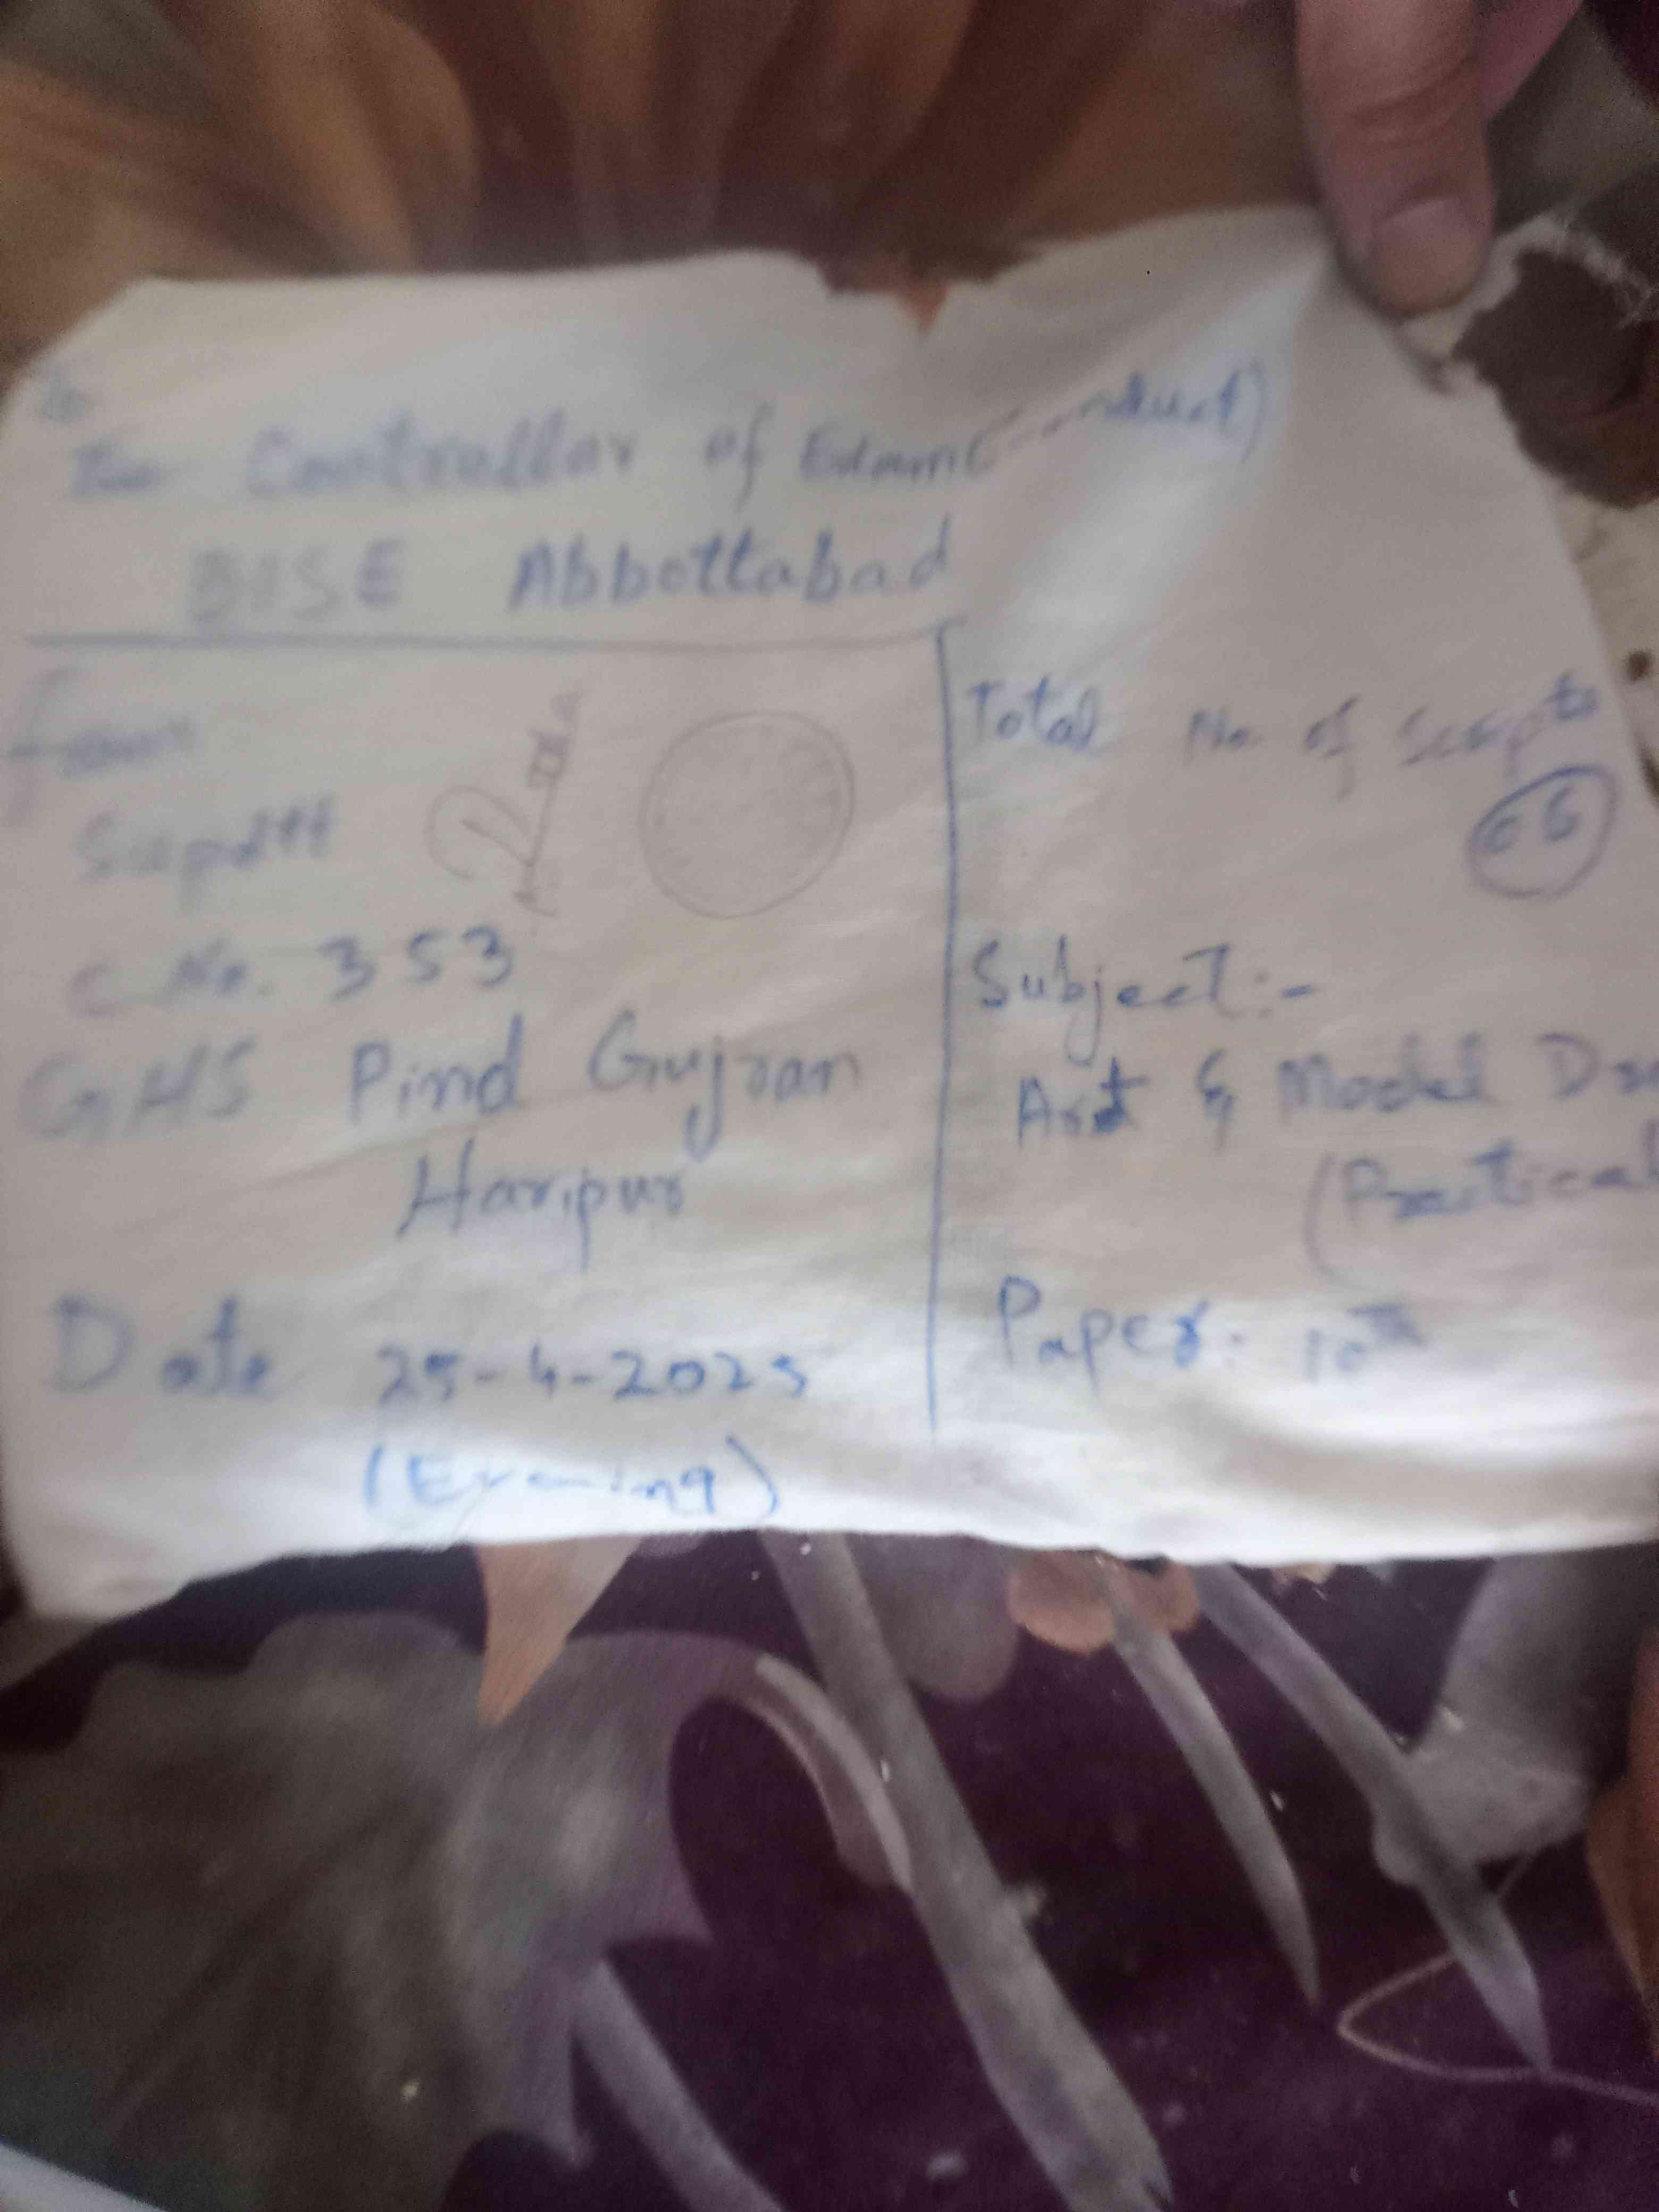 To
The Controller of Exam (Conduct)
BISE Abbottabad
From
Supdtt
C No. 353
GHS Pind Gujran
Haripur
Date 25-4-2025
(Evening)
Total No. of Scripts
66
Subject:-
Art & Model Dra
(Practical
Paper: 10th